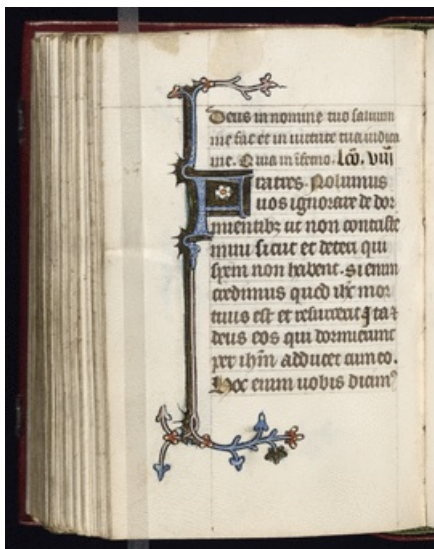 Deus in nomine tuo saluum
me fac et in uirtute tua iudica
me. Quia in
Fratres. Nolumus
uos ignorare de dor
mientibꝫ ut non contriste
mini sicut et ceteri qui
spem non habent. si enim
credimus quod ihc mor
tuus est et resurrexit Ita et
deus eos qui dormierunt
per ihm adducet cum eo.
Hoc enim uobis dicimꝰ